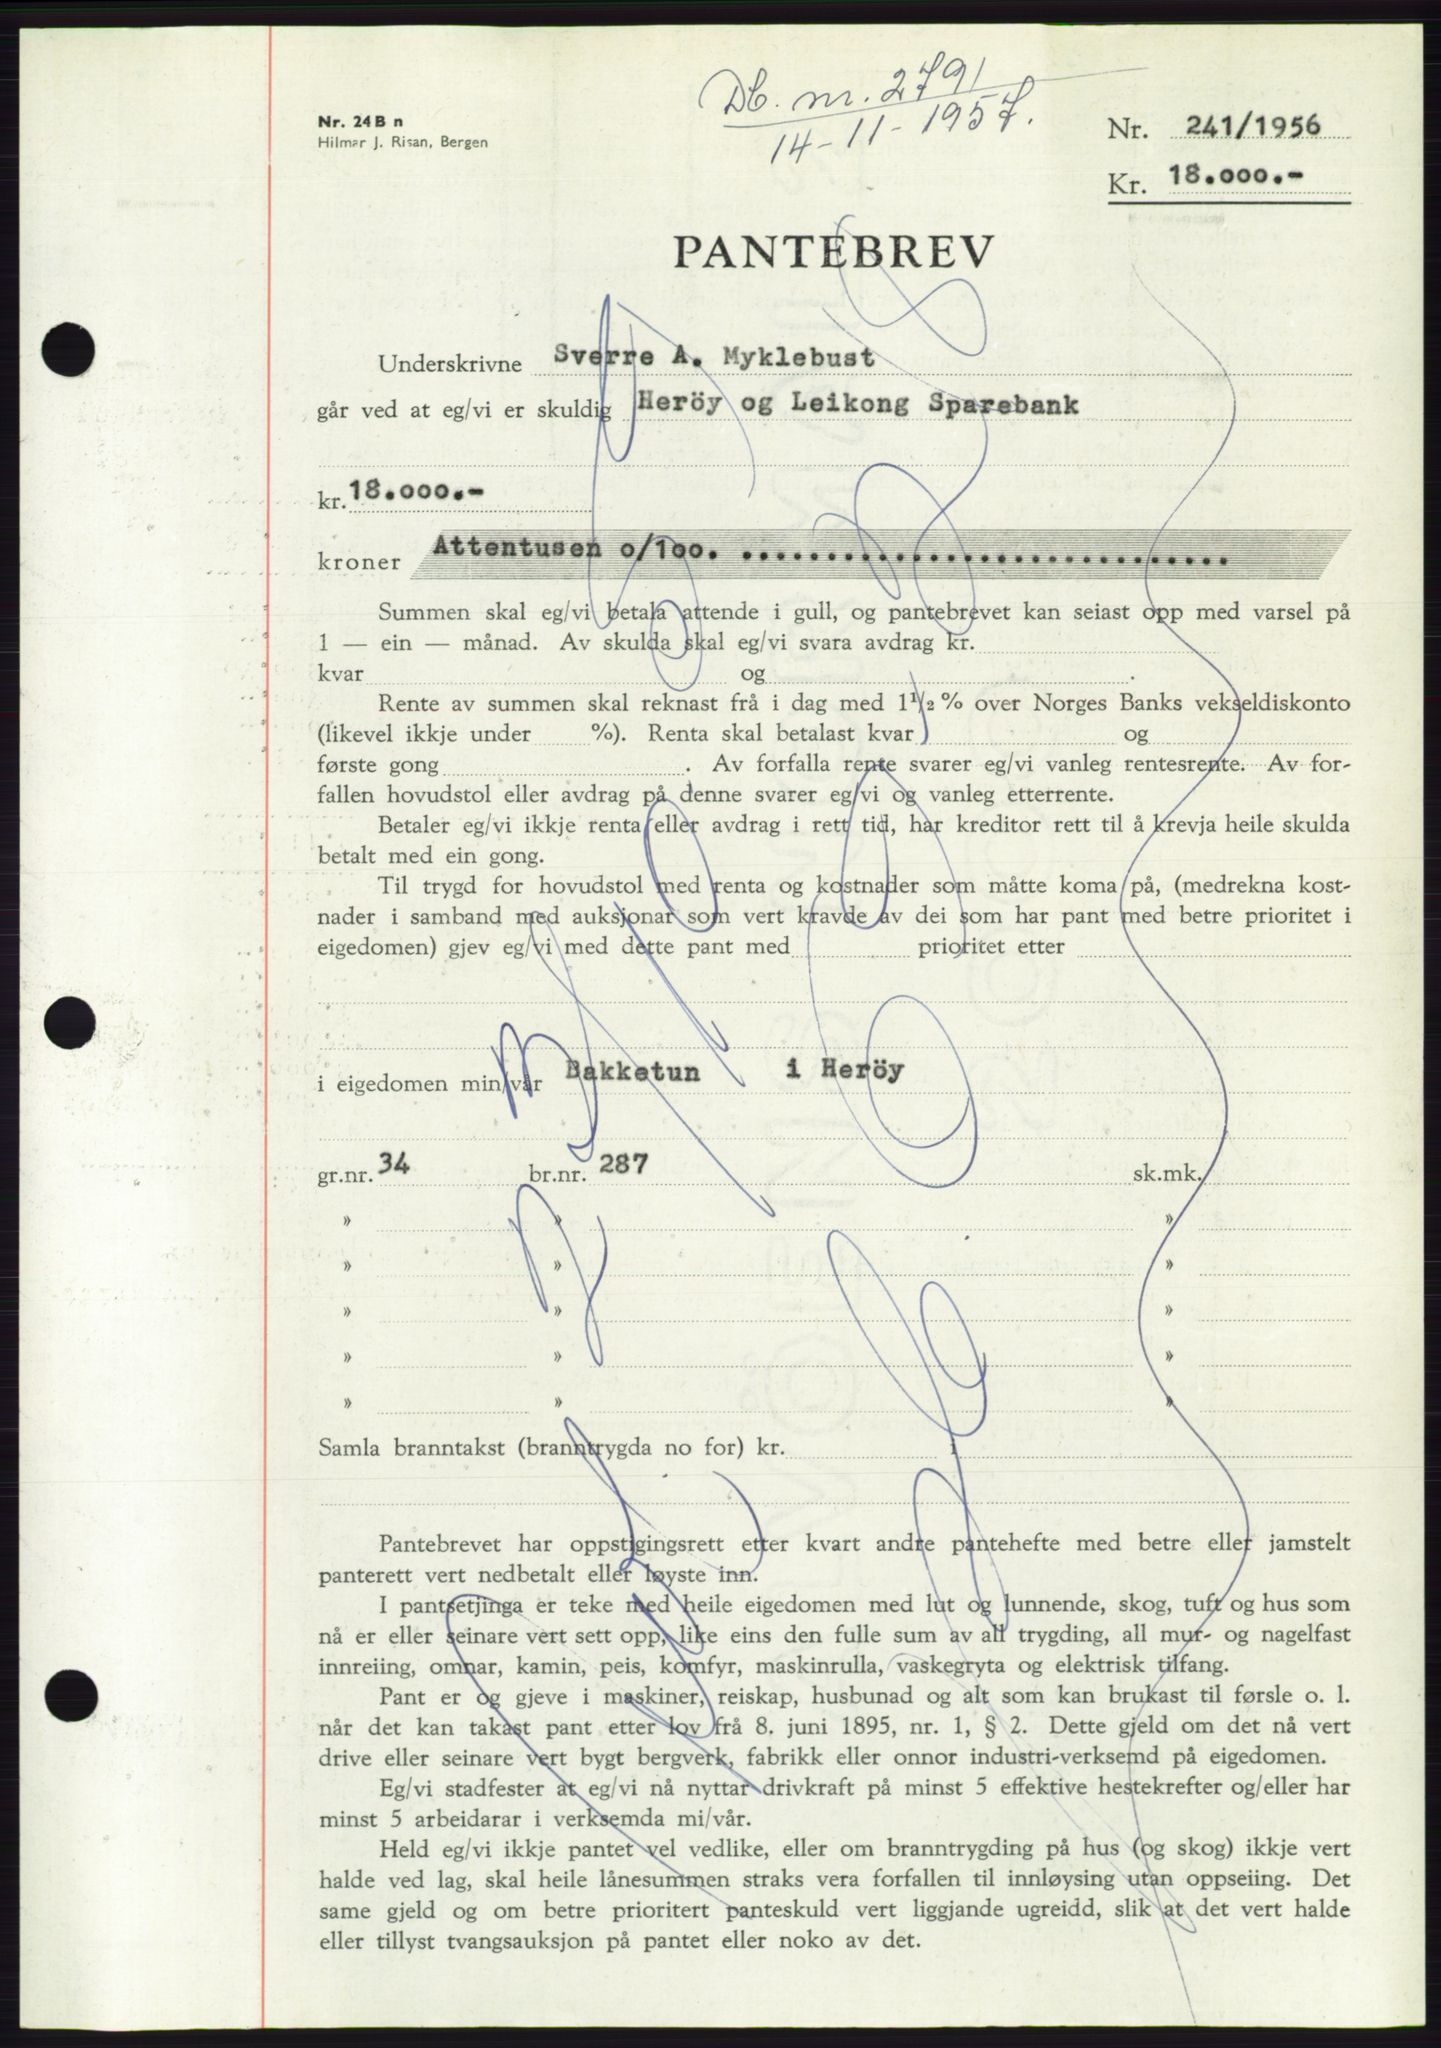 Db. nr. 2791
14-11-1957.
Nr. 24 B n
Hilmar J. Risan, Bergen
Nr. 241/1956
Kr. 18.000.-
PANTEBREV
Underskrivne Sverre A. Myklebust
går ved at eg/vi er skuldig Heröy og Leikong Sparebank
kr. 18.000.-
kroner Attentusen o/1oo. .............................
Summen skal eg/vi betala attende i gull, og pantebrevet kan seiast opp med varsel på
1 — ein — månad. Av skulda skal eg/vi svara avdrag kr.
kvar og .
Rente av summen skal reknast frå i dag med 1 1/2 % over Norges Banks vekseldiskonto
(likevel ikkje under %). Renta skal betalast kvar og
første gong . Av forfalla rente svarer eg/vi vanleg rentesrente. Av for-
fallen hovudstol eller avdrag på denne svarer eg/vi og vanleg etterrente.
Betaler eg/vi ikkje renta eller avdrag i rett tid, har kreditor rett til å krevja heile skulda
betalt med ein gong.
Til trygd for hovudstol med renta og kostnader som måtte koma på, (medrekna kost-
nader i samband med auksjonar som vert kravde av dei som har pant med betre prioritet i
eigedomen) gjev eg/vi med dette pant med prioritet etter
i eigedomen min/vår Bakketun i Heröy
gr.nr. 34 br.nr. 287 sk.mk.
» » »
» » »
» » »
» » »
» » »
Samla branntakst (branntrygda no for) kr. i
Pantebrevet har oppstigingsrett etter kvart andre pantehefte med betre eller jamstelt
panterett vert nedbetalt eller løyste inn.
I pantsetjinga er teke med heile eigedomen med lut og lunnende, skog, tuft og hus som
nå er eller seinare vert sett opp, like eins den fulle sum av all trygding, all mur- og nagelfast
innreiing, omnar, kamin, peis, komfyr, maskinrulla, vaskegryta og elektrisk tilfang.
Pant er og gjeve i maskiner, reiskap, husbunad og alt som kan brukast til førsle o. l.
når det kan takast pant etter lov frå 8. juni 1895, nr. 1, § 2. Dette gjeld om det nå vert
drive eller seinare vert bygt bergverk, fabrikk eller onnor industri-verksemd på eigedomen.
Eg/vi stadfester at eg/vi nå nyttar drivkraft på minst 5 effektive hestekrefter og/eller har
minst 5 arbeidarar i verksemda mi/vår.
Held eg/vi ikkje pantet vel vedlike, eller om branntrygding på hus (og skog) ikkje vert
halde ved lag, skal heile lånesummen straks vera forfallen til innløysing utan oppseiing. Det
same gjeld og om betre prioritert panteskuld vert liggjande ugreidd, slik at det vert halde
eller tillyst tvangsauksjon på pantet eller noko av det.